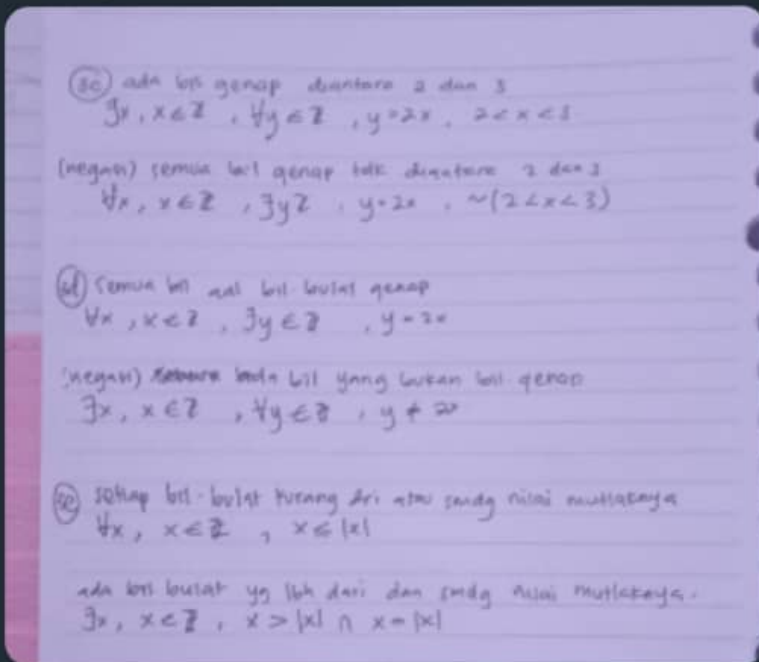 3c) ada bil genap diantara 2 dan 3
∃x, x∈Z, ∀y∈Z, y=2x, 2<x<3
(negasi) semua bil genap tdk diantara 2 dan 3
∀x, x∈Z, ∃yZ, y=2x, ~(2<x<3)
semua bil bil bulat genap
∀x, x∈Z, ∃y∈Z, y=2x
(negasi) bil yang bukan bil genap
∃x, x∈Z, ∀y∈Z, y≠2x
setiap bil bulat kurang dri atau smdg nilai mutlaknya
∀x, x∈Z, x≤|x|
ada bil bulat yg lbh dari dan smdg nilai mutlaknya.
∃x, x∈Z, x>|x| ∩ x=|x|